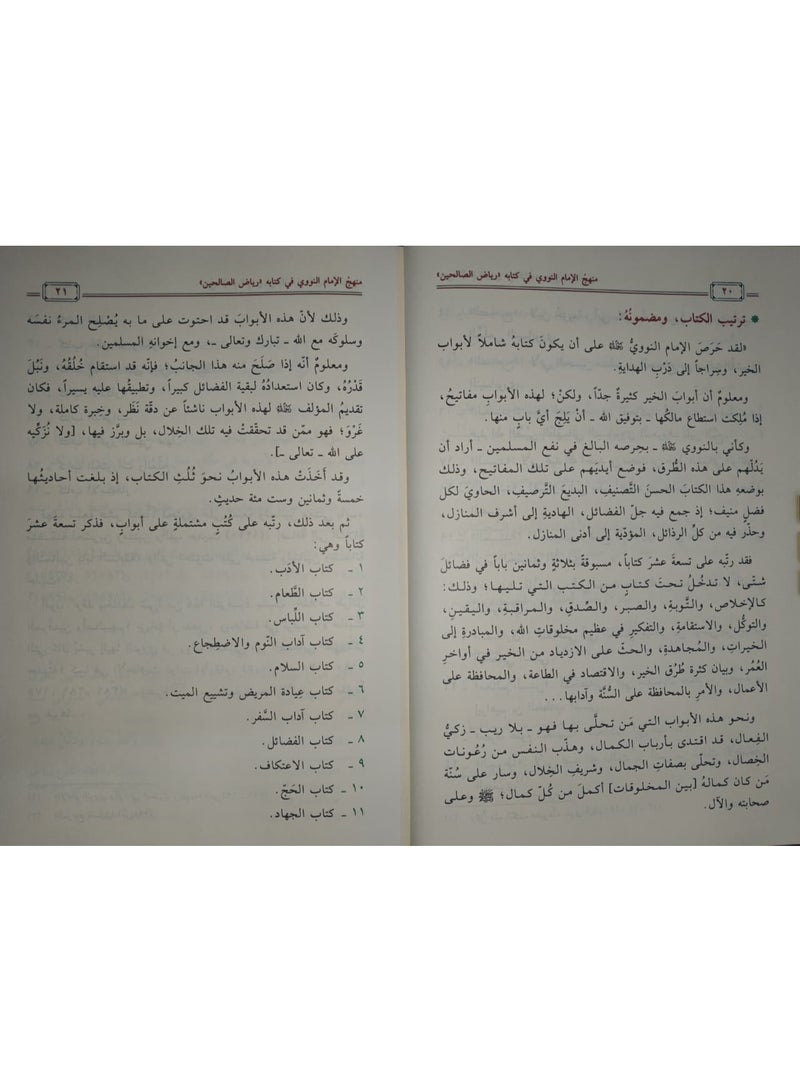 منهجُ الإمام النووي في كتابه «رياض الصالحين»
٢٠
* ترتيب الكتاب، ومضمونُهُ:
«لقد حَرَصَ الإمام النوويُّ ﵀ على أن يكونَ كتابهُ شاملاً لأبواب
الخير، وسِراجاً إلى دَرْبِ الهدايةِ.
ومعلومٌ أن أبوابَ الخير كثيرةٌ جدّاً، ولكنْ؛ لهذه الأبوابِ مفاتيحُ،
إذا مُلِكت استطاع مالكُها ـ بتوفيق الله ـ أنْ يَلِجَ أيَّ بابٍ منها.
وكأني بالنووي ﵀ ـ بحِرصه البالغ في نفع المسلمين ـ أراد أن
يَدُلَّهم على هذه الطُّرق، فوضع أيديَهم على تلك المفاتيح، وذلك
بوضعِهِ هذا الكتابَ الحسنَ التَّصنيفِ، البديعَ التَّرصيفِ، الحاويَ لكل
فضلٍ منيف؛ إذ جمع فيه جلّ الفضائل، الهاديةِ إلى أشرف المنازل،
وحذّر فيه من كلِّ الرذائل، المؤدّية إلى أدنى المنازل.
فقد رتّبه على تسعةَ عشرَ كتاباً، مسبوقةً بثلاثةٍ وثمانين باباً في فضائلَ
شتّى، لا تدخُلُ تحتَ كتابٍ من الكتب التي تليها؛ وذلك:
كالإخلاصِ، والتَّوبةِ، والصبرِ، والصِّدقِ، والمراقبةِ، واليقينِ،
والتوكُّلِ، والاستقامةِ، والتفكيرِ في عظيم مخلوقاتِ الله، والمبادرةِ إلى
الخيراتِ، والمُجاهدةِ، والحثِّ على الازديادِ من الخير في أواخرِ
العُمُر، وبيان كثرة طُرُقِ الخير، والاقتصاد في الطاعة، والمحافظة على
الأعمال، والأمرِ بالمحافظة على السُّنَّة وآدابها...
ونحو هذه الأبواب التي مَن تحلَّى بها فهو ـ بلا ريب ـ زكيُّ
الفِعال، قد اقتدى بأرباب الكمال، وهذّب النفس من رُعُونات
الخِصال، وتحلّى بصفاتِ الجمال، وشريفِ الخِلال، وسار على سُنّة
مَن كان كمالُهُ [بين المخلوقات] أكملَ من كُلّ كمال؛ ﷺ وعلى
صحابته والآل.
منهجُ الإمام النووي في كتابه «رياض الصالحين»
٢١
وذلك لأنّ هذه الأبوابَ قد احتوت على ما به يُصْلِح المرءُ نفسَه
وسلوكَه مع الله ـ تبارك وتعالى ـ، ومع إخوانهِ المسلمين.
ومعلومٌ أنّه إذا صَلَحَ منه هذا الجانبُ؛ فإنّه قد استقام خُلُقُهُ، ونَبُلَ
قَدْرُهُ، وكان استعدادُهُ لبقية الفضائل كبيراً، وتطبيقُها عليه يسيراً، فكان
تقديمُ المؤلف ﵀ لهذه الأبواب ناشئاً عن دقّة نَظَر، وخِبرة كاملة، ولا
غَرْوَ؛ فهو ممّن قد تحقّقتْ فيه تلك الخِلال، بل وبرَّز فيها، [ولا نُزَكّيه
على الله ـ تعالى ـ].
وقد أخَذَتْ هذه الأبوابُ نحوَ ثُلُثِ الكتاب، إذ بلغت أحاديثُها
خمسةً وثمانين وست مئة حديثٍ.
ثم بعد ذلك، رتّبه على كُتُبٍ مشتملةٍ على أبوابٍ، فذكر تسعةَ عشرَ
كتاباً وهي:
١ ـ كتاب الأدَب.
٢ ـ كتاب الطَّعام.
٣ ـ كتاب اللِّباس.
٤ ـ كتاب آداب النَّوم والاضطِجاع.
٥ ـ كتاب السلام.
٦ ـ كتاب عِيادة المريض وتشييع الميت.
٧ ـ كتاب آداب السَّفر.
٨ ـ كتاب الفضائل.
٩ ـ كتاب الاعتكاف.
١٠ ـ كتاب الحَجّ.
١١ ـ كتاب الجهاد.